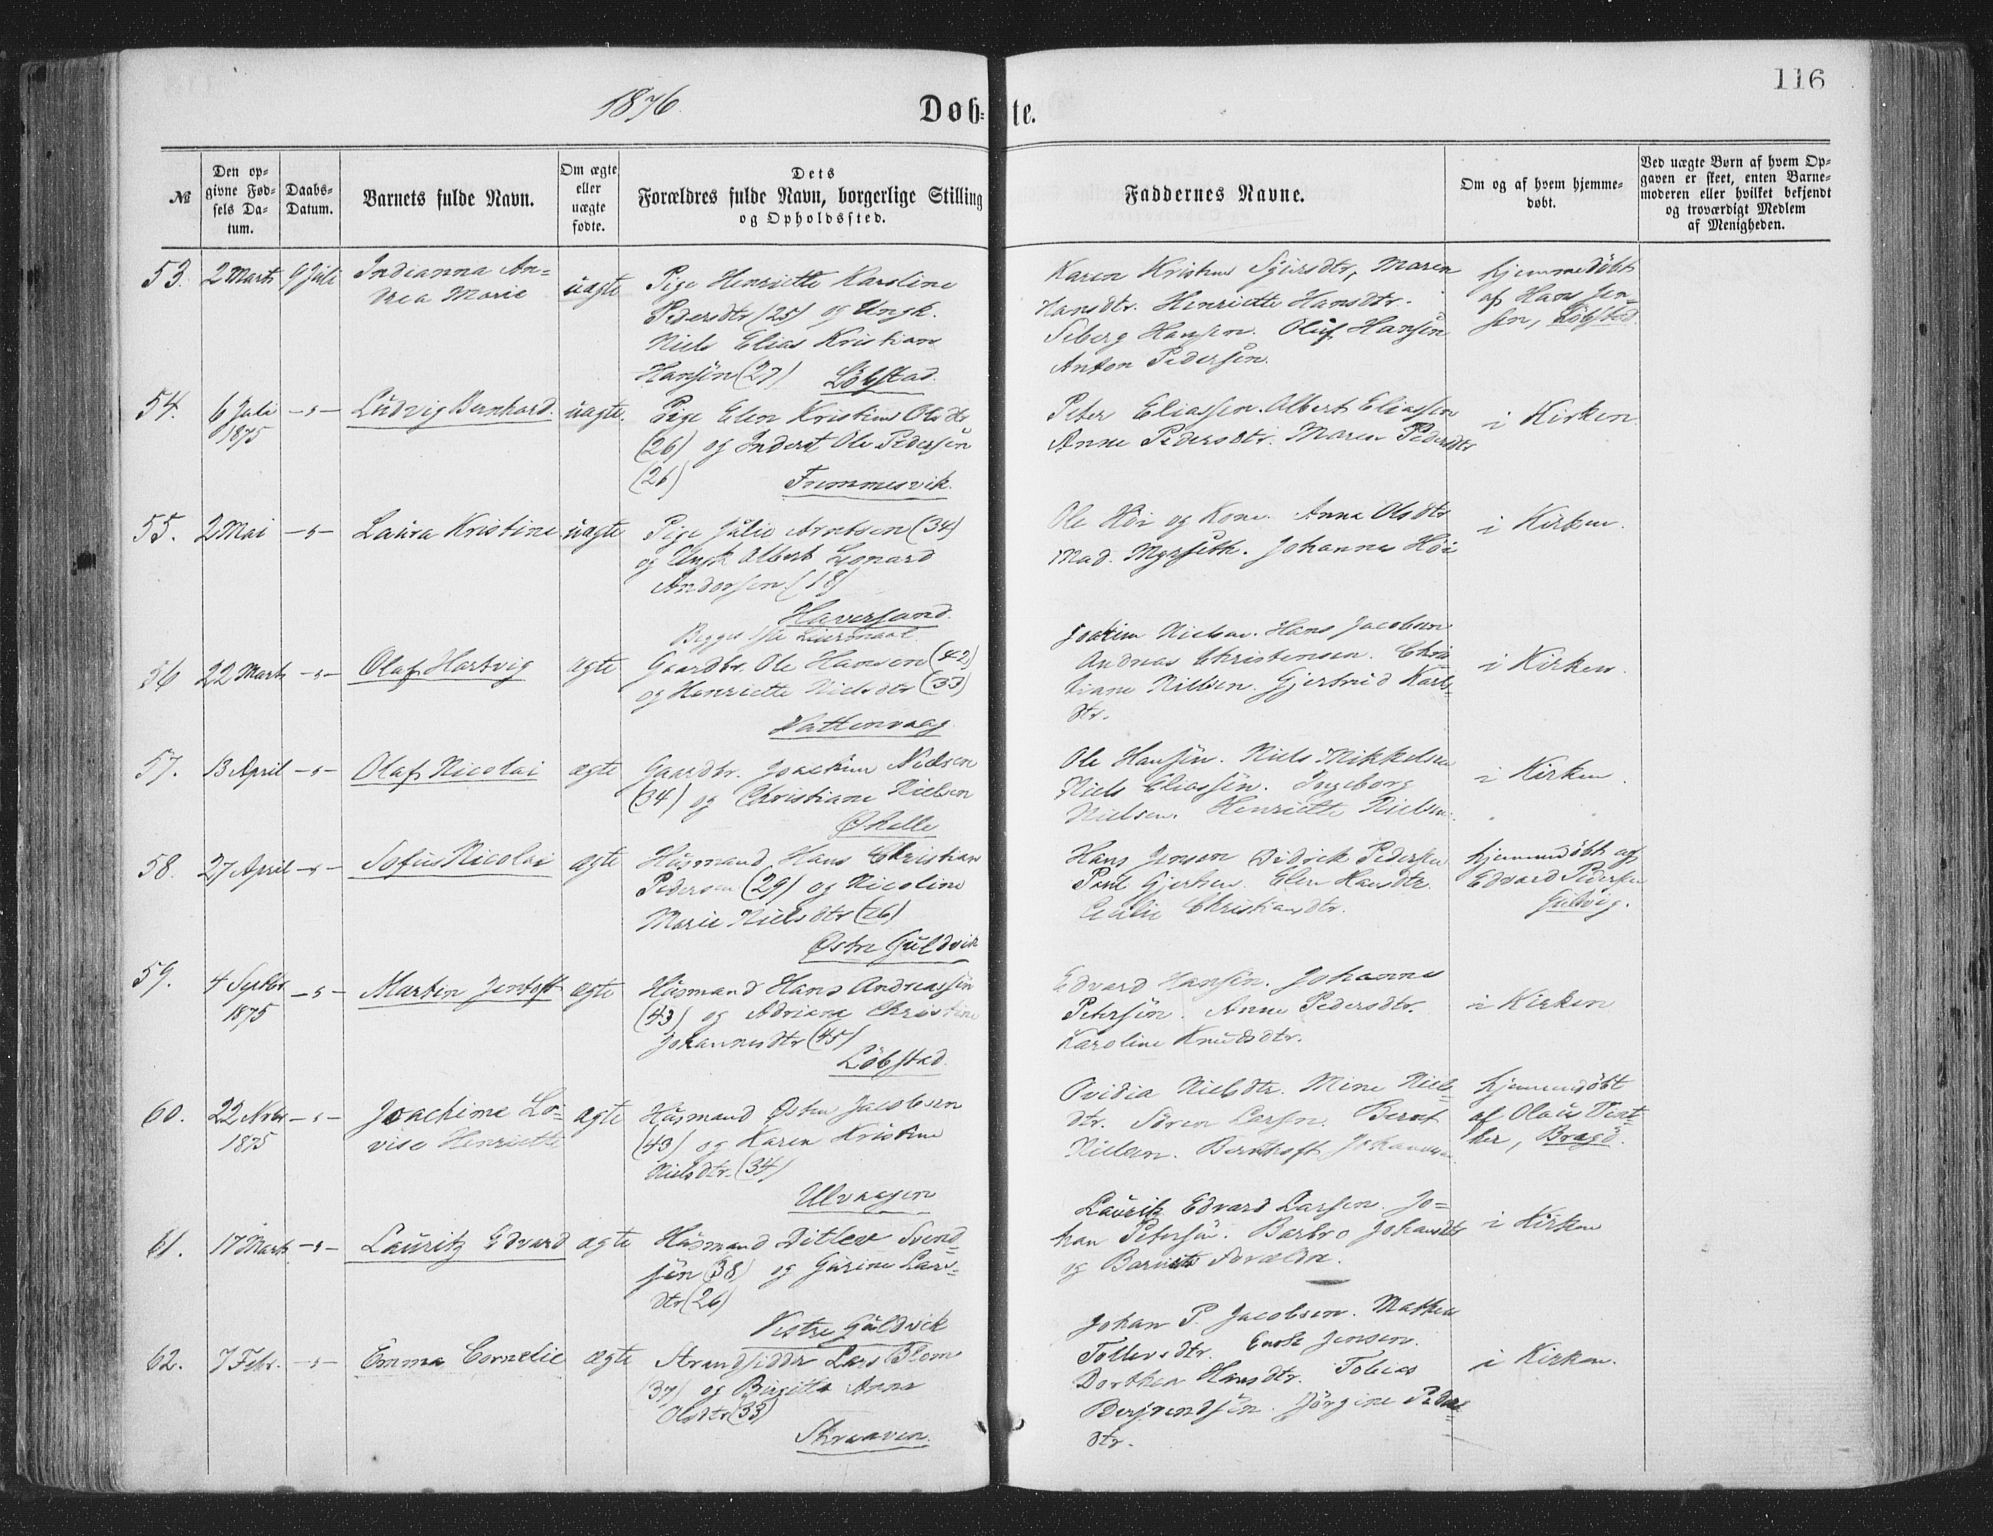 116
1876
Døbte.
№
Den opgivne Fødsels Datum.
Daabs-Datum.
Barnets fulde Navn.
Om ægte eller uægte fødte.
Dets Forældres fulde Navn, borgerlige Stilling og Opholdssted.
Faddernes Navne.
Om og af hvem hjemmedøbt.
Ved uægte Børn af hvem Opgaven er skeet, enten Barnemoderen eller hvilket bekjendt og troværdigt Medlem af Menigheden.
53. 2 Marts 9 Juli Indianna An-
drea Marie
uægte
Pige Henriette Karoline
Pedersdtr (25) og Ungk.
Niels Elias Kristian
Hansen (27) Löbstad.
Karen Kristine Sjursdtr, Maren
Hansdtr. Henriette Hansdtr.
Seberg Hansen. Oluf Hansen
Anton Pedersen.
hjemmedöbt
af Hans Jen-
sen, Löbstad.
54. 6 Juli -"- Ludvig Bernhard. uægte.
1875
Pige Elen Kristine Olsdtr
(26) og Inderst Ole Pedersen
(26) Trømmesvik.
Peter Eliassen. Albert Eliassen
Anne Pedersdtr. Maren Pedersdtr
i Kirken
55. 2 Mai -"- Laura Kristine uægte
Pige Julie Arntsen (34)
og Ungk Albert Leonard
Andersen (18)
Haversand.
Begge fra
Ole Höi og Kone. Anna Olsdtr
Mad. Myrseth. Johanna Höi
i Kirken.
56 22 Marts -"- Olaf Hartvig ægte
Gaardbr. Ole Hansen (42)
og Henriette Nielsdtr (33)
Vattenvaag.
Joakim Nielsen. Hans Jacobsen
Andreas Christensen. Chris
tiane Nielsen. Gjertrud Karls-
dtr.
i Kirken.
57. 13 April -"- Olaf Nicolai ægte
Gaardbr. Joachim Nielsen
(34) og Christiane Nielsen
Ole Hansen. Niels Mikkelsen
Niels Eliassen. Ingeborg
Nielsen. Henriette Nielsen.
i Kirken.
58. 27 April -"- Sofus Nicolai ægte
Husmand Hans Christian
Pedersen (29) og Nicoline
Marie Nielsdtr (26)
Østre Guldvik
Hans Jensen Didrik Pedersen
Paul Gjertsen. Elen Hansdtr.
Cecilie Christiansdtr.
hjemmedöbt af
Edvard Pedersen
Gulvig.
59. 4 Septbr -"- Martin Jentoft ægte
1875
Husmand Hans Andreassen
(43) og Adriana Christine
Johannesdtr (45)
Löbstad.
Edvard Hansen. Johannes
Petersen. Anne Pedersdtr.
Karoline Knudsdtr.
i Kirken
60. 22 Novbr -"- Joachime Lo-
1875 vise Henriette
ægte
Husmand Østen Jacobsen
(43) og Karen Kristine
Nielsdtr. (34)
Ulvaagen
Ovidia Nielsdtr. Mine Niels
dtr. Sören Larsen. Bernt
Nielsen. Bernhoft Johannesen
hjemmedöbt
af Olaus Vint-
her, Brasö.
61. 17 Marts -"- Lauritz Edvard ægte
Husmand Ditlev Svend-
sen (38) og Gurine Lars-
dtr (26)
Vestre Guldvik
Lauritz Edvard Larsen. Jo-
han Petersen. Barbro Johansdtr
og Barnets Forældre.
i Kirken
62. 7 Febr. -"- Emma Cornelie ægte
Strandsidder Lars Blom
(37) og Birgitta Anna
Olsdtr (33)
Skraaven.
Johan P. Jacobsen. Mathea
Tollevsdtr. Enok Jensen.
Dorthea Hansdtr. Tobias
Bergvendsen. Jörgine Peders-
dtr.
i Kirken.